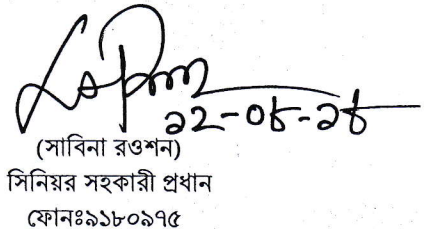 ১২-০৮-১৮
(সাবিনা রওশন)
সিনিয়র সহকারী প্রধান
ফোনঃ৯১৮০৯৭৫